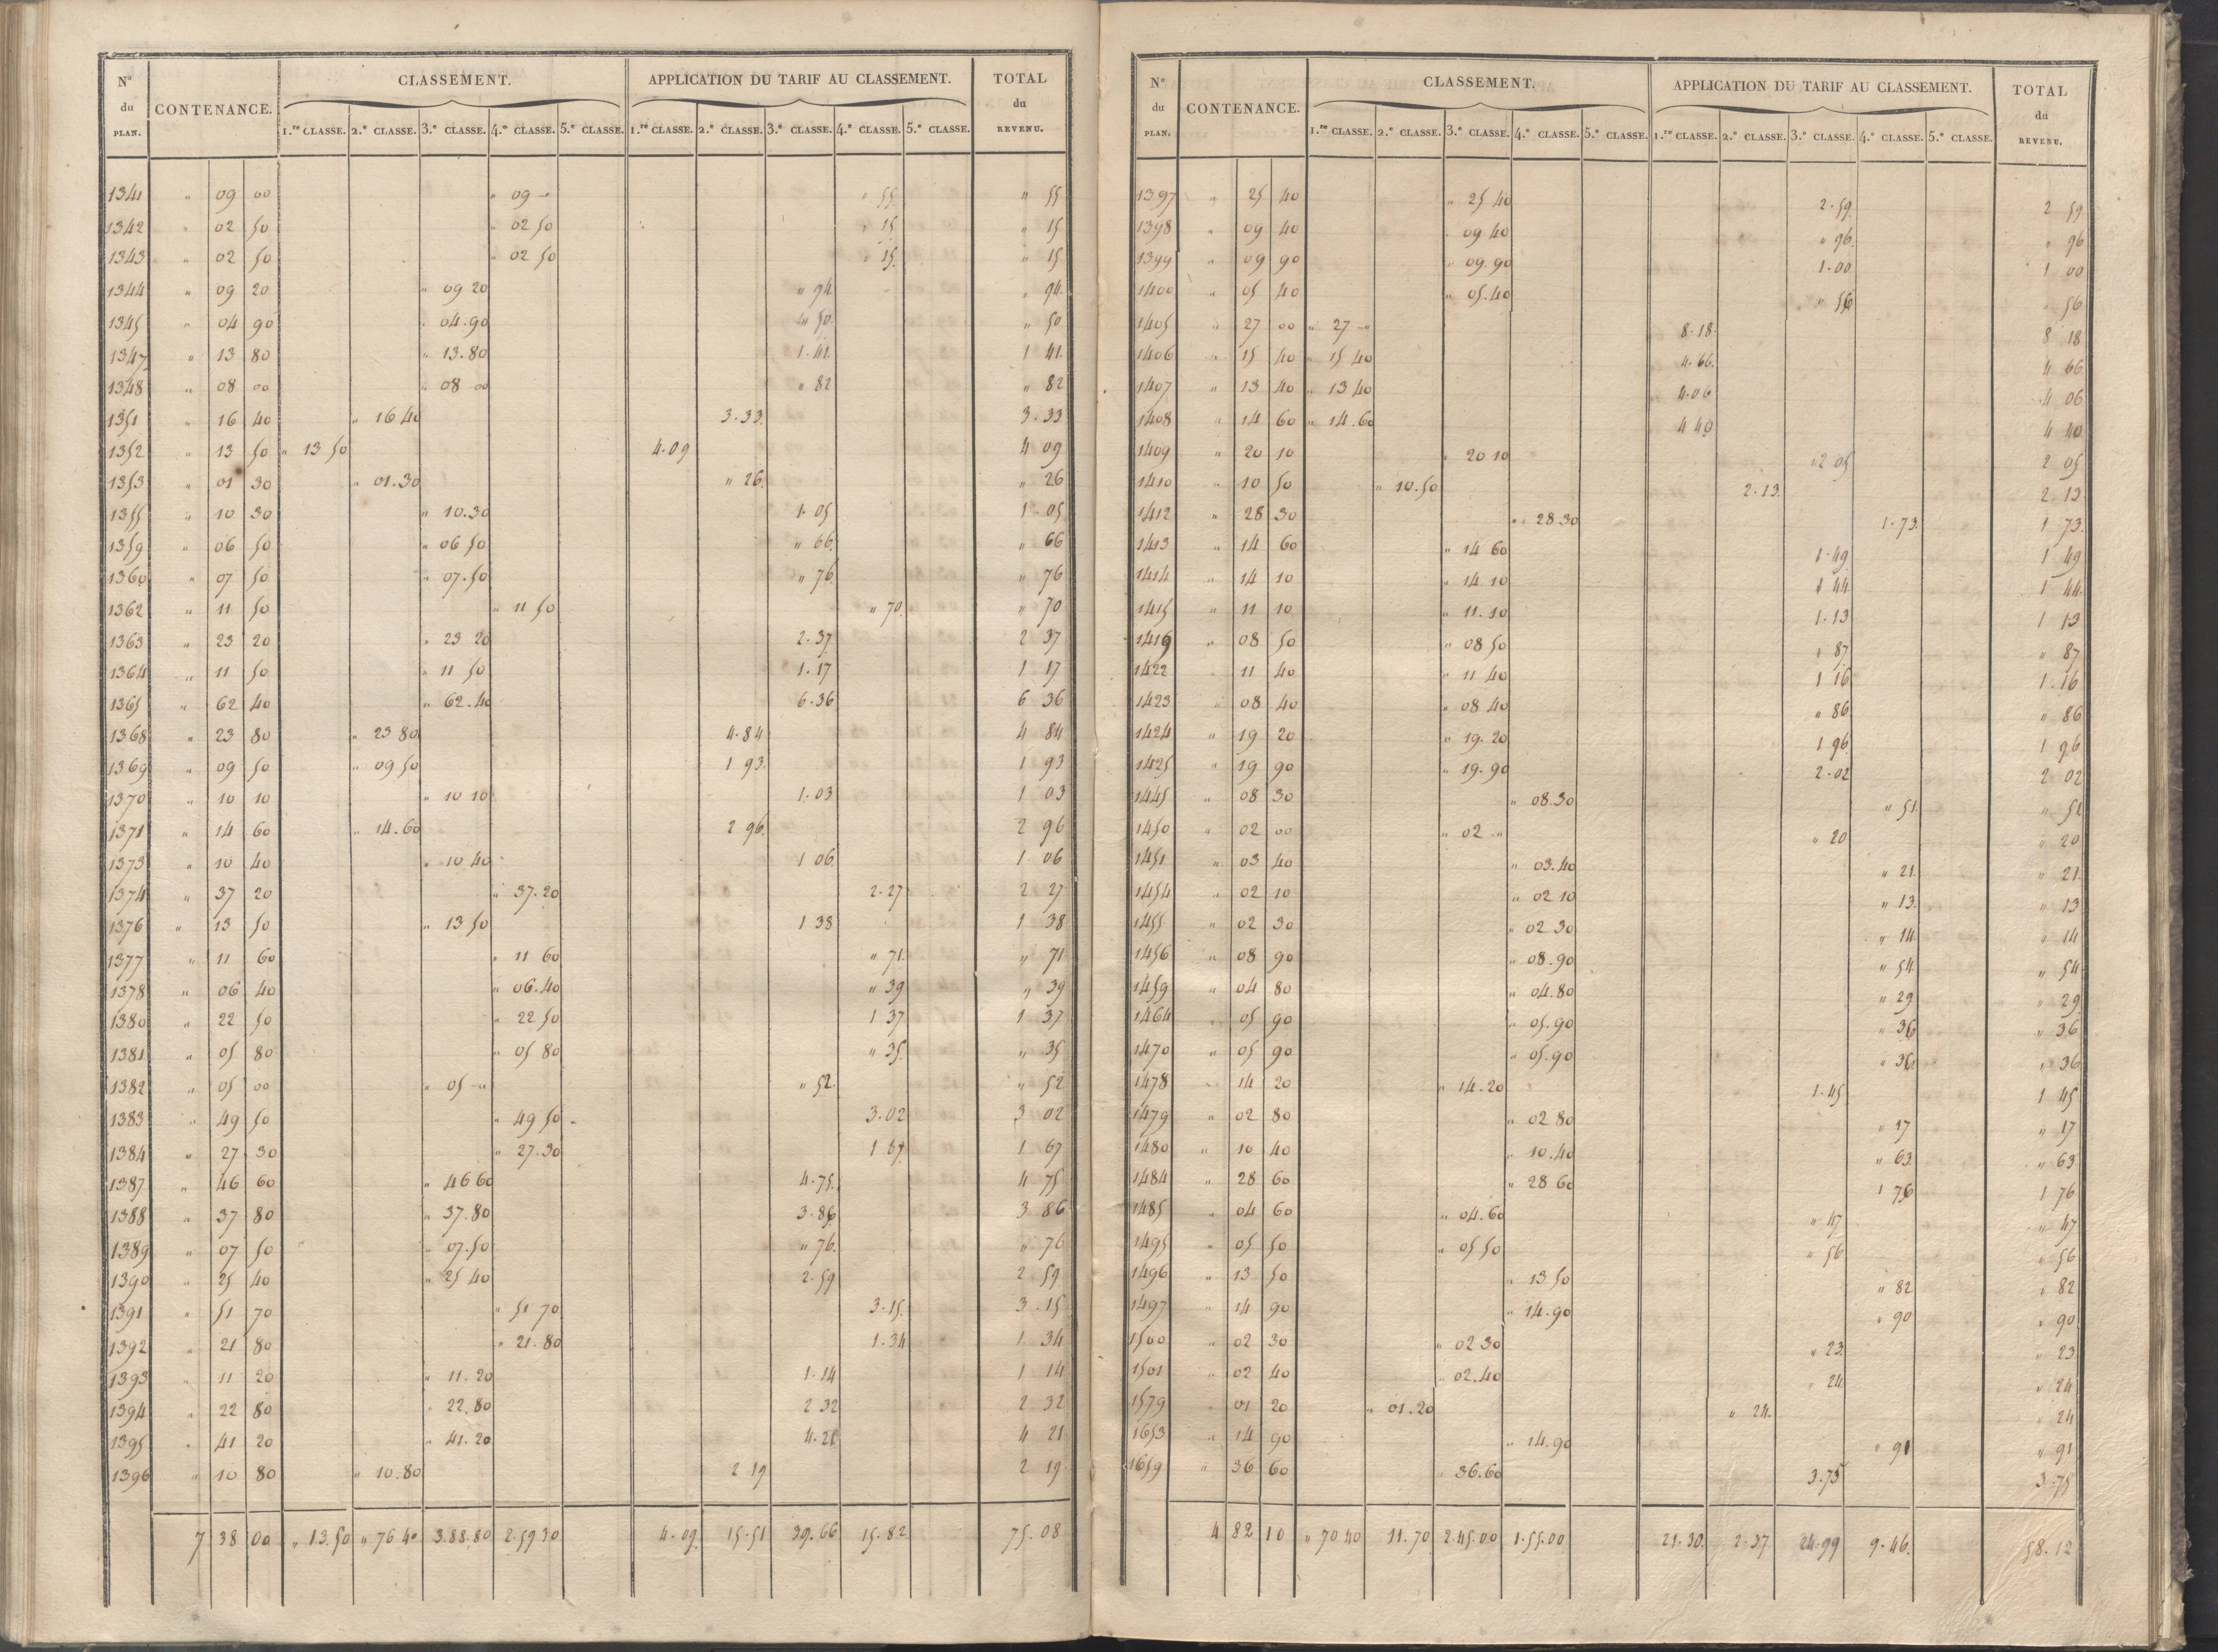 N° du PLAN. CONTENANCE. CLASSEMENT. APPLICATION DU TARIF AU CLASSEMENT. TOTAL du REVENU.
1.re CLASSE. 2.e CLASSE. 3.e CLASSE. 4.e CLASSE. 5.e CLASSE. 1.re CLASSE. 2.e CLASSE. 3.e CLASSE. 4.e CLASSE. 5.e CLASSE.
1341 " 09 00 " 09 -" " 55. " 55
1342 " 02 50 " 02 50 " 15 " 15
1343 " 02 50 " 02 50 " 15. " 15
1344 " 09 20 " 09 20 " 94 " 94.
1345 " 04 90 " 04.90 " 50. " 50
1347 " 13 80 " 13.80 1.41. 1 41.
1348 " 08 00 " 08 00 " 82 " 82
1351 " 16 40 " 16 40 3.33. 3.33
1352 " 13 50 " 13 50 4.09 4 09
1353 " 01 30 " 01.30 " 26. " 26
1355 " 10 30 " 10.30 1.05 1.05
1359 " 06 50 " 06 50 " 66. " 66
1360 " 07 50 " 07.50 " 76 " 76
1362 " 11 50 " 11 50 " 70. " 70
1363 " 23 20 " 23 20 2.37 2 37
1364 " 11 50 " 11 50 1.17 1 17
1365 " 62 40 " 62.40 6.36 6 36
1368 " 23 80 " 23 80 4.84 4 84
1369 " 09 50 " 09 50 1 93. 1 93
1370 " 10 10 " 10 10 1.03 1 03
1371 " 14 60 " 14.60 2 96. 2 96
1373 " 10 40 " 10 40 1 06 1 06
1374 " 37 20 " 37.20 2.27 2 27
1376 " 13 50 " 13 50 1 38 1 38
1377 " 11 60 " 11 60 " 71. " 71
1378 " 06 40 " 06.40 " 39 " 39
1380 " 22 50 " 22 50 1 37 1 37
1381 " 05 80 " 05 80 " 35. " 35
1382 " 05 00 " 05 -" " 52. " 52
1383 " 49 50 " 49 50 3.02 3 02
1384 " 27 30 " 27.30 1 67 1 67
1387 " 46 60 " 46 60 4.75. 4 75
1388 " 37 80 " 37.80 3.86 3 86
1389 " 07 50 " 07.50 " 76. " 76
1390 " 25 40 " 25 40 2.59 2 59
1391 " 51 70 " 51 70 3.15. 3.15
1392 " 21 80 " 21.80 1.34 1.34
1393 " 11 20 " 11.20 1.14 1 14
1394 " 22 80 " 22.80 2 32 2 32
1395 " 41 20 " 41.20 4.21 4 21
1396 " 10 80 " 10.80 2 19 2 19
7 38 00 " 13.50 " 76 40 3.88.80 2.59 30 4.09. 15.51 39.66 15.82 75.08
N° du PLAN. CONTENANCE. CLASSEMENT. APPLICATION DU TARIF AU CLASSEMENT. TOTAL du REVENU.
1.re CLASSE. 2.e CLASSE. 3.e CLASSE. 4.e CLASSE. 5.e CLASSE. 1.re CLASSE. 2.e CLASSE. 3.e CLASSE. 4.e CLASSE. 5.e CLASSE.
1397 " 25 40 " 25 40 2.59. 2 59
1398 " 09 40 " 09 40 " 96. " 96
1399 " 09 90 " 09.90 1.00 1 00
1400 " 05 40 " 05.40 " 56 " 56
1405 " 27 00 " 27 -" 8.18. 8 18
1406 " 15 40 " 15 40 4.66. 4 66
1407 " 13 40 " 13 40 4.06 4 06
1408 " 14 60 " 14.60 4 40 4 40
1409 " 20 10 " 20 10 2 05 2 05
1410 " 10 50 " 10.50 2.13. 2 13
1412 " 28 30 " 28.30 1.73. 1 73.
1413 " 14 60 " 14 60 1.49 1 49
1414 " 14 10 " 14 10 1 44 1 44
1415 " 11 10 " 11.10 1.13 1 13
1416 " 08 50 " 08 50 " 87 " 87
1422 " 11 40 " 11 40 1 16 1.16
1423 " 08 40 " 08 40 " 86 " 86
1424 " 19 20 " 19.20 1 96 1 96
1425 " 19 90 " 19.90 2.02 2 02
1445 " 08 30 " 08.30 " 51. " 51
1450 " 02 00 " 02 -" " 20 " 20
1451 " 03 40 " 03.40 " 21. " 21.
1454 " 02 10 " 02 10 " 13. " 13
1455 " 02 30 " 02 30 " 14 " 14
1456 " 08 90 " 08.90 " 54. " 54
1459 " 04 80 " 04.80 " 29 " 29
1464 " 05 90 " 05.90 " 36 " 36
1470 " 05 90 " 05.90 " 36 " 36
1478 " 14 20 " 14.20 1.45 1 45
1479 " 02 80 " 02 80 " 17 " 17
1480 " 10 40 " 10.40 " 63 " 63
1484 " 28 60 " 28 60 1 76 1 76
1485 " 04 60 " 04.60 " 47 " 47
1495 " 05 50 " 05 50 " 56 " 56
1496 " 13 50 " 13 50 " 82 " 82
1497 " 14 90 " 14.90 " 90 " 90
1500 " 02 30 " 02 30 " 23. " 23
1501 " 02 40 " 02.40 " 24. " 24
1579 " 01 20 " 01.20 " 24. " 24
1653 " 14 90 " 14.90 " 91 " 91
1659 " 36 60 36.60 3.75 3.75
4 82 10 " 70 40 11.70 2.45.00 1.55.00 21.30. 2.37 24.99 9.46. 58.12